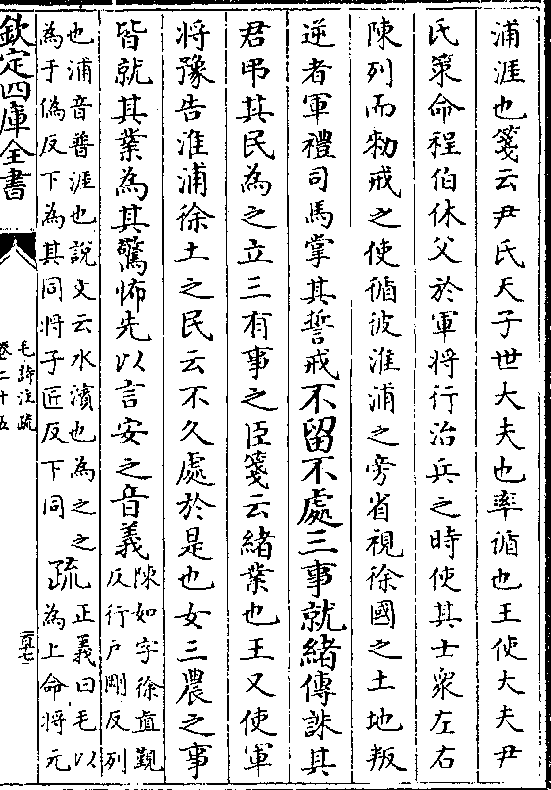 浦涯也箋云尹氏天子世大夫也率循也王使大夫尹
氏策命程伯休父於軍將行治兵之時使其士衆左右
陳列而勑戒之使循彼淮浦之旁省視徐國之土地叛
逆者軍禮司馬掌其誓戒不留不處三事就緒傳誅其
君弔其民為之立三有事之臣箋云緒業也王又使軍
將豫告淮浦徐土之民云不久處於是也女三農之事
皆就其業為其驚怖先以言安之音義陳如字徐直覲
反行户剛反列
也浦音普涯也說文云水濵也為之之
為于偽反下為其同將子匠反下同
疏正義曰毛以
為上命將元
欽定四庫全書
毛詩注疏
卷二十五